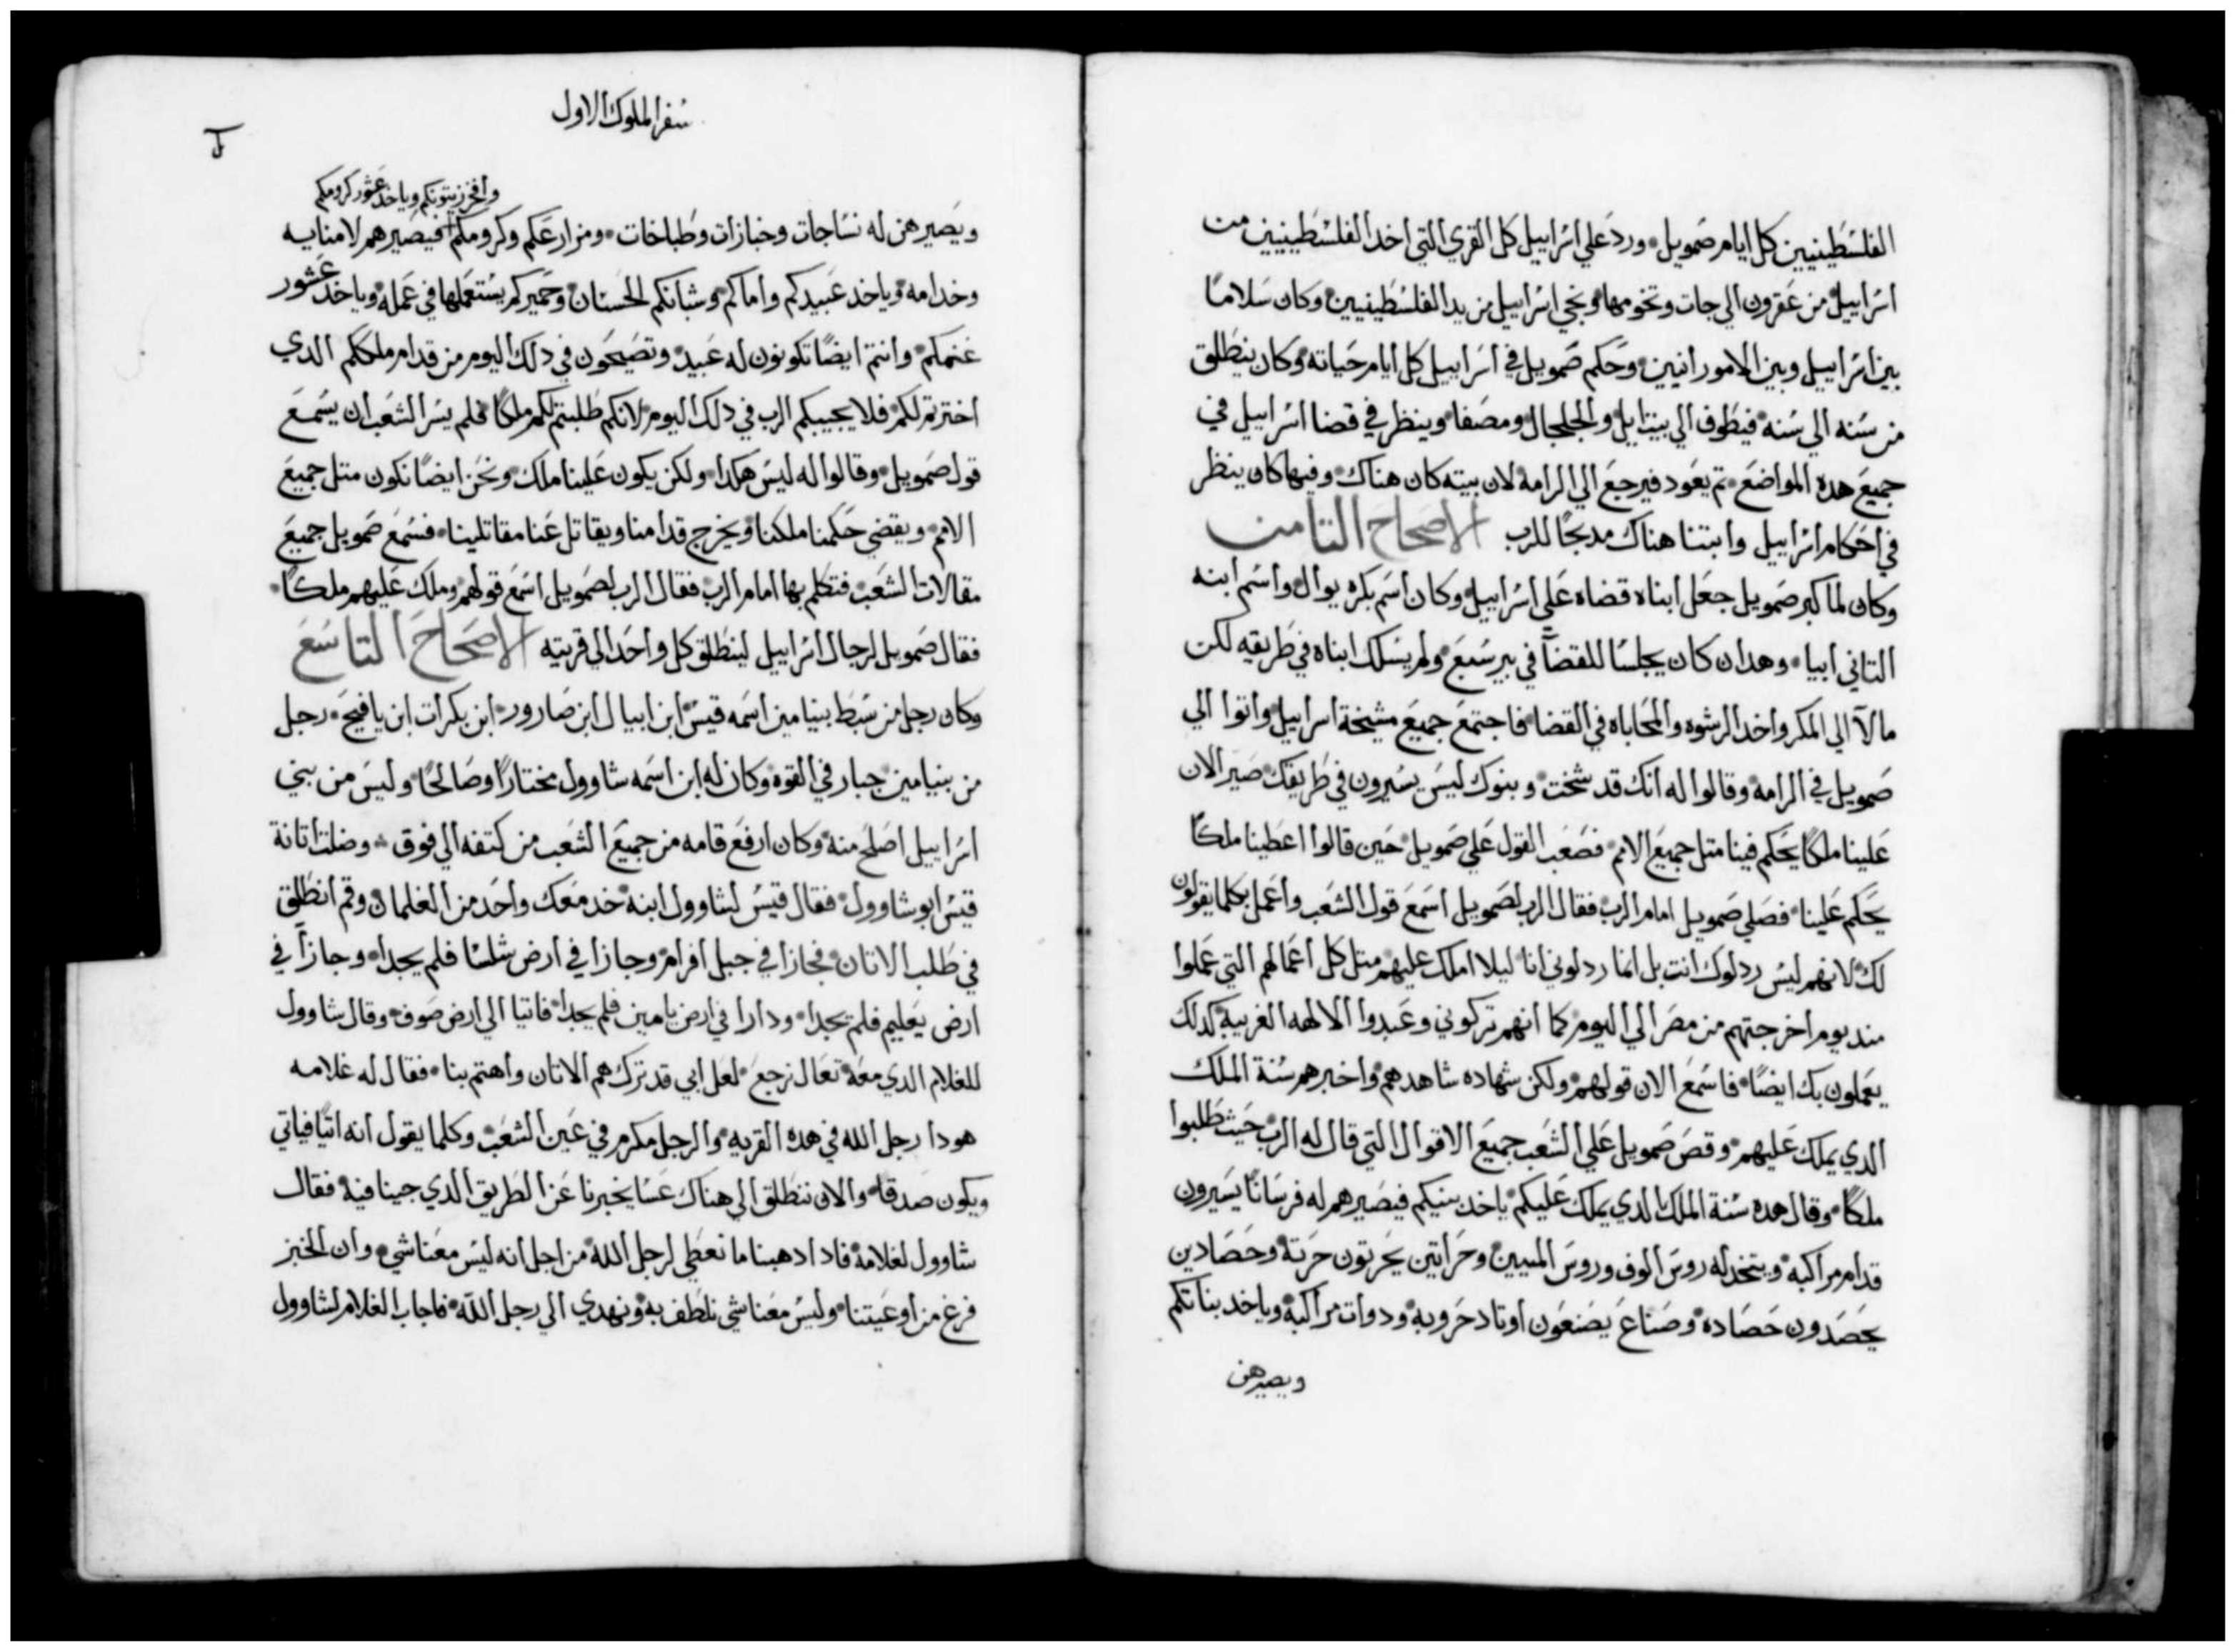 الفلسطينيين كل ايام صمويل ورد علي اسراييل كل القري التي اخد الفلسطينيين من
اسراييل من عقرون الي جات وتخومها ونجي اسراييل من يد الفلسطينيين وكان سلامًا
بين اسراييل وبين الامورانيين وحكم صمويل في اسراييل كل ايام حياته وكان ينطلق
من سنه الي سنه فيطوف الي بيتايل والجلجال ومصفا وينظر في قضا اسراييل في
جميع هده المواضع تم يعود فيرجع الي الرامه لان بيته كان هناك وفيها كان ينظر
في احكام اسراييل وابتنا هناك مدبحًا للرب الاصحاح التامن
وكان لما كبر صمويل جعل ابناه قضاه علي اسراييل وكان اسم بكره يوال واسم ابنه
التاني ابيا وهدان كان يجلسا للقضآ في بير سبع ولم يسلك ابناه في طريقه لكن
مالآ الي المكر واخد الرشوه والمحاباه في القضا فاجتمع جميع مشيخة اسراييل واتوا الي
صمويل في الرامه وقالوا له انك قد شخت وبنوك ليس يسيرون في طريقك صير الان
علينا ملكًا يحكم فينا متل جميع الامم فصعب القول علي صمويل حين قالوا اعطينا ملكًا
يحكم علينا فصلي صمويل امام الرب فقال الرب لصمويل اسمع قول الشعب واعمل بكلما يقولون
لك لانهم ليس ردلوك انت بل انما ردلوني انا ليلا املك عليهم متل كل اعمالهم التي عملوا
مند يوم اخرجتهم من مصر الي اليوم كما انهم تركوني وعبدوا الالهه الغريبة كدلك
يعملون بك ايضًا فاسمع الان قولهم ولكن شهاده شاهدهم واخبرهم سنة الملك
الدي يملك عليهم وقص صمويل علي الشعب جميع الاقوال التي قال له الرب حيث طلبوا
ملكًا وقال هده سنة الملك الدي يملك عليكم ياخد بنيكم فيصيرهم له فرسانًا يسيرون
قدام مراكبه ويتخد له روس الوف وروس الميين وحراتين يحرتون حرته وحصادين
يحصدون حصاده وصناع يصنعون اوتاد حروبه ودوات مراكبه وياخد بناتكم
ويصيرهن
سفر الملوك الاول
وافخر زيتونكم وياخد عشور كرومكم
ويصيرهن له نساجات وخبازات وطباخات ومزارعكم وكرومكم فيصيرهم لامنايه
وخدامه وياخد عبيدكم واماكم وشبانكم الحسان وحميركم يستعملها في عمله وياخد عشور
غنمكم وانتم ايضًا تكونون له عبيد وتصيحون في دلك اليوم من قدام ملككم الدي
اخترتم لكم فلا يجيبكم الرب في دلك اليوم لانكم طلبتم لكم ملكًا فلم يسر الشعب ان يسمع
قول صمويل وقالوا له ليس هكدا ولكن يكون علينا ملك ونحن ايضًا نكون متل جميع
الامم ويقضي حكمنا ملكنا ويخرج قدامنا ويقاتل عنا مقاتلينا فسمع صمويل جميع
مقالات الشعب فتكلم بها امام الرب فقال الرب لصمويل اسمع قولهم وملك عليهم ملكًا
فقال صمويل لرجال اسراييل لينطلق كل واحد الي قريته الاصحاح التاسع
وكان رجل من سبط بنيامين اسمه قيس ابن ابيال ابن صارور ابن بكرات ابن يافيح رجل
من بنيامين جبار في القوه وكان له ابن اسمه شاوول مختارًا وصالحًا وليس من بني
اسراييل اصلح منه وكان ارفع قامه من جميع الشعب من كتفه الي فوق وضلت اتانة
قيس ابو شاوول فقال قيس لشاوول ابنه خد معك واحد من الغلمان وقم انطلق
في طلب الاتان فجازا في جبل افرام وجازا في ارض شلسا فلم يجدا وجازا في
ارض يعليم فلم يجدا ودارا في ارض يامين فلم يجدا فاتيا الي ارض صوف وقال شاوول
للغلام الدي معه تعال نرجع لعل ابي قد ترك هم الاتان واهتم بنا فقال له غلامه
هودا رجل الله في هده القريه والرجل مكرم في عين الشعب وكلما يقول انه اتيًا فياتي
ويكون صدقًا والان ننطلق الي هناك عسا يخبرنا عن الطريق الدي جينا فيه فقال
شاوول لغلامه فادا دهبنا ما نعطي لرجل الله من اجل انه ليس معنا شي وان الخبز
فرغ من اوعيتنا وليس معنا شي نلطف به ونهدي الي رجل الله فاجاب الغلام لشاوول